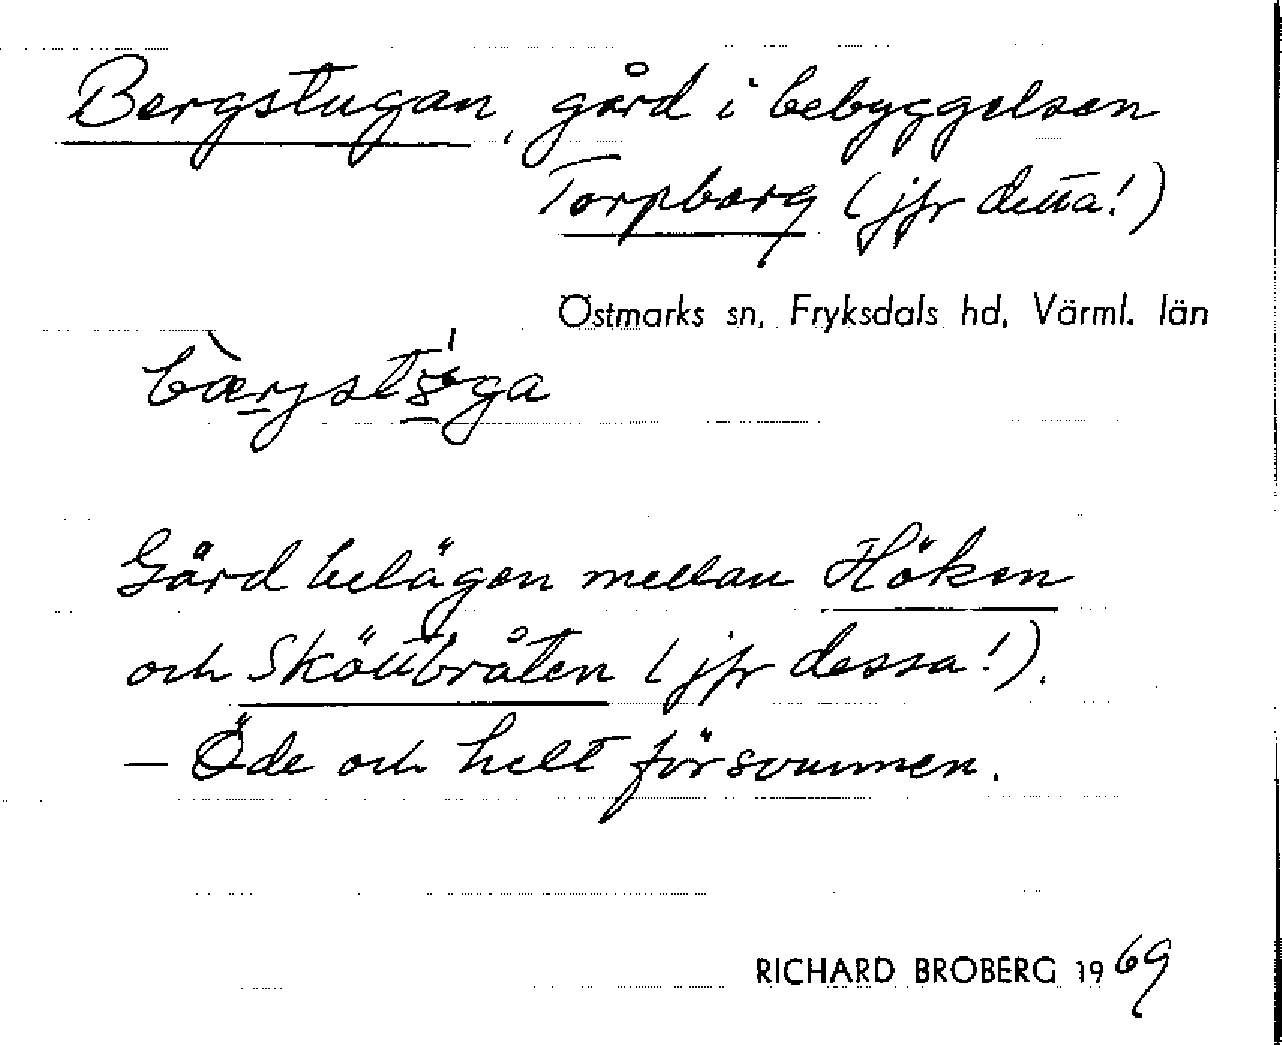 Bergstugan, gård i bebyggelsen
Torpberg (jfr detta!)
Östmarks sn, Fryksdals hd, Värml. län
Gård belägen mellan Höken
och Sköttbråten (jfr dessa!).
— Öde och helt försvunnen.
RICHARD BROBERG 1969